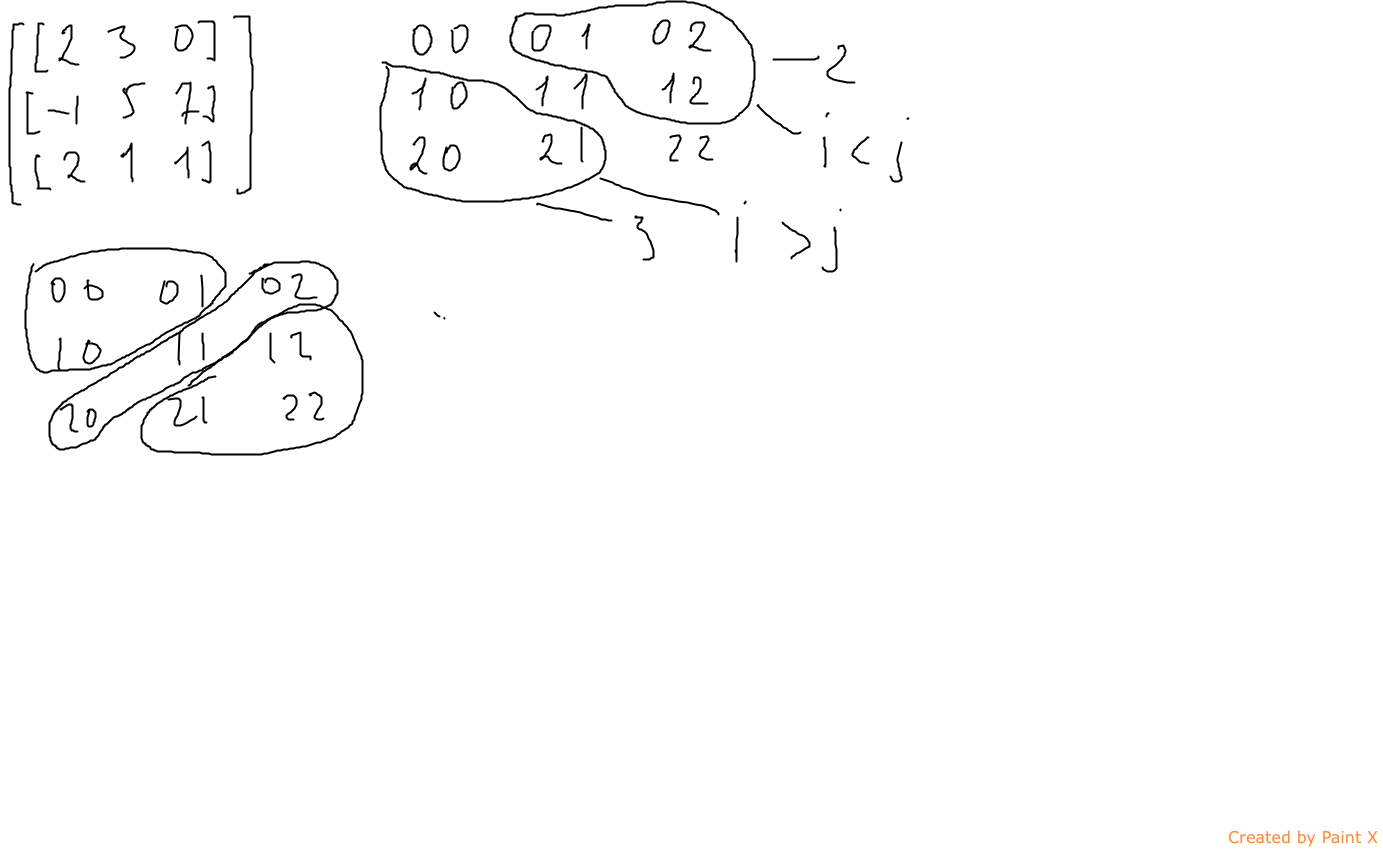 [[2 3 0]
[-1 5 7]
[2 1 1]]
00 01 02 - 2
10 11 12
i < j
20 21 22
3 i > j
00 01 02
10 11 12
20 21 22
Created by Paint X